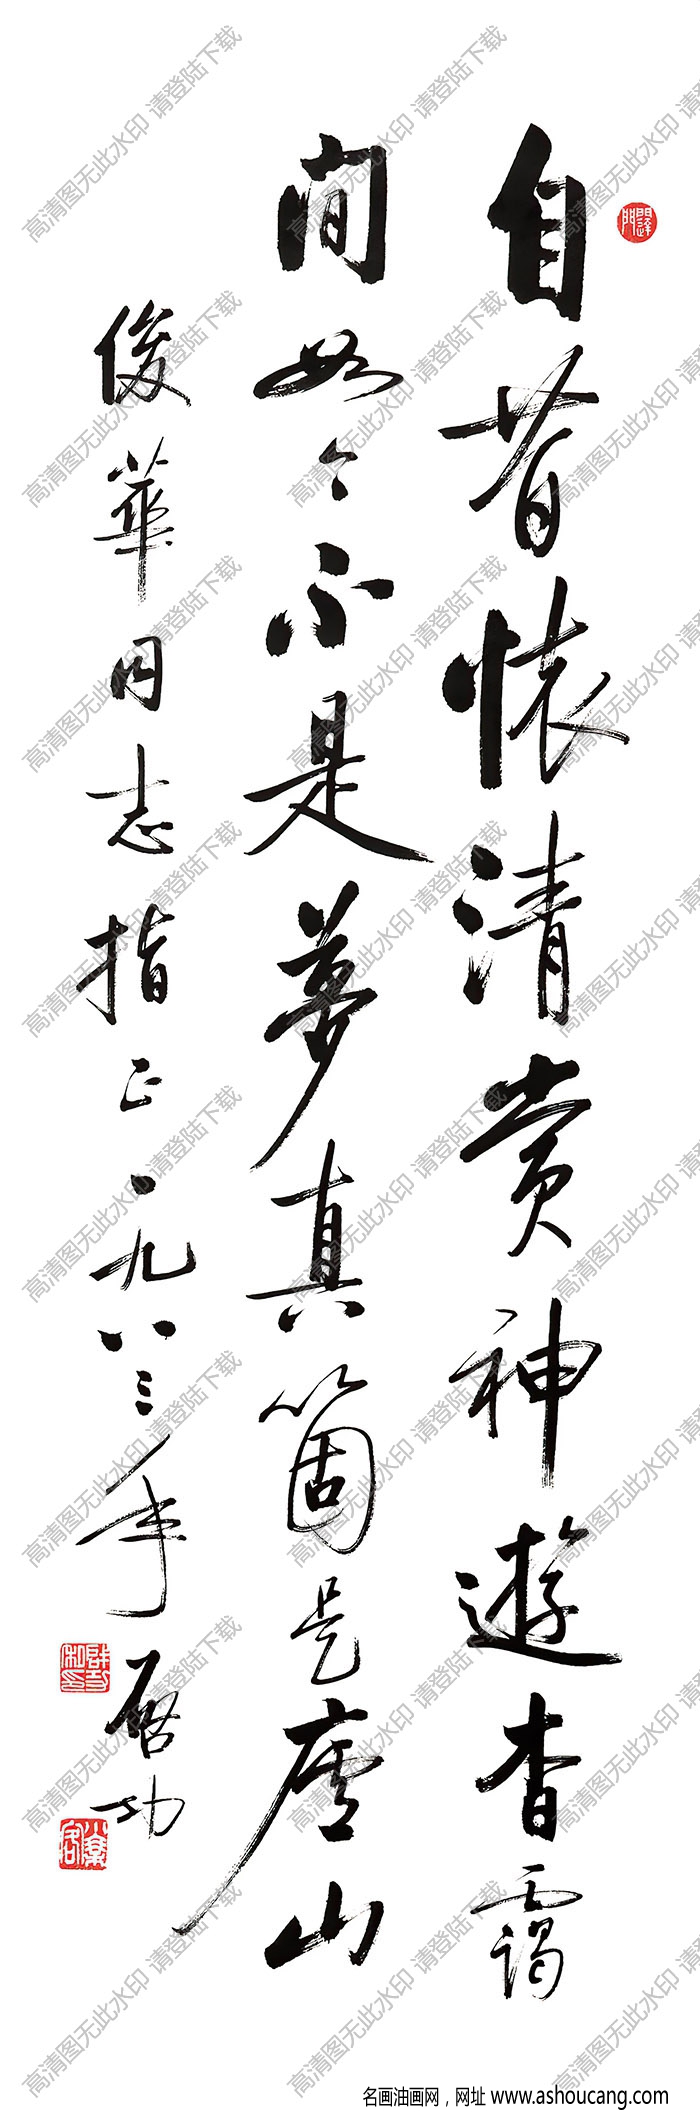 自昔懷清賞神遊杳靄
間如今不是夢真箇是廬山
俊華同志指正一九八三年
啓功
高清图无此水印 请登陆下载
名画油画网，网址 www.ashoucang.com